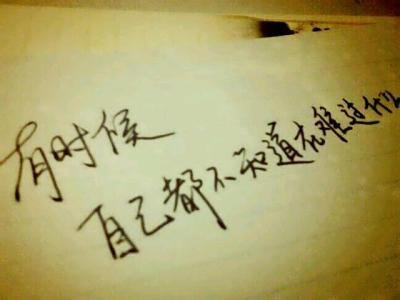 有时候
自己都不知道在难过什么